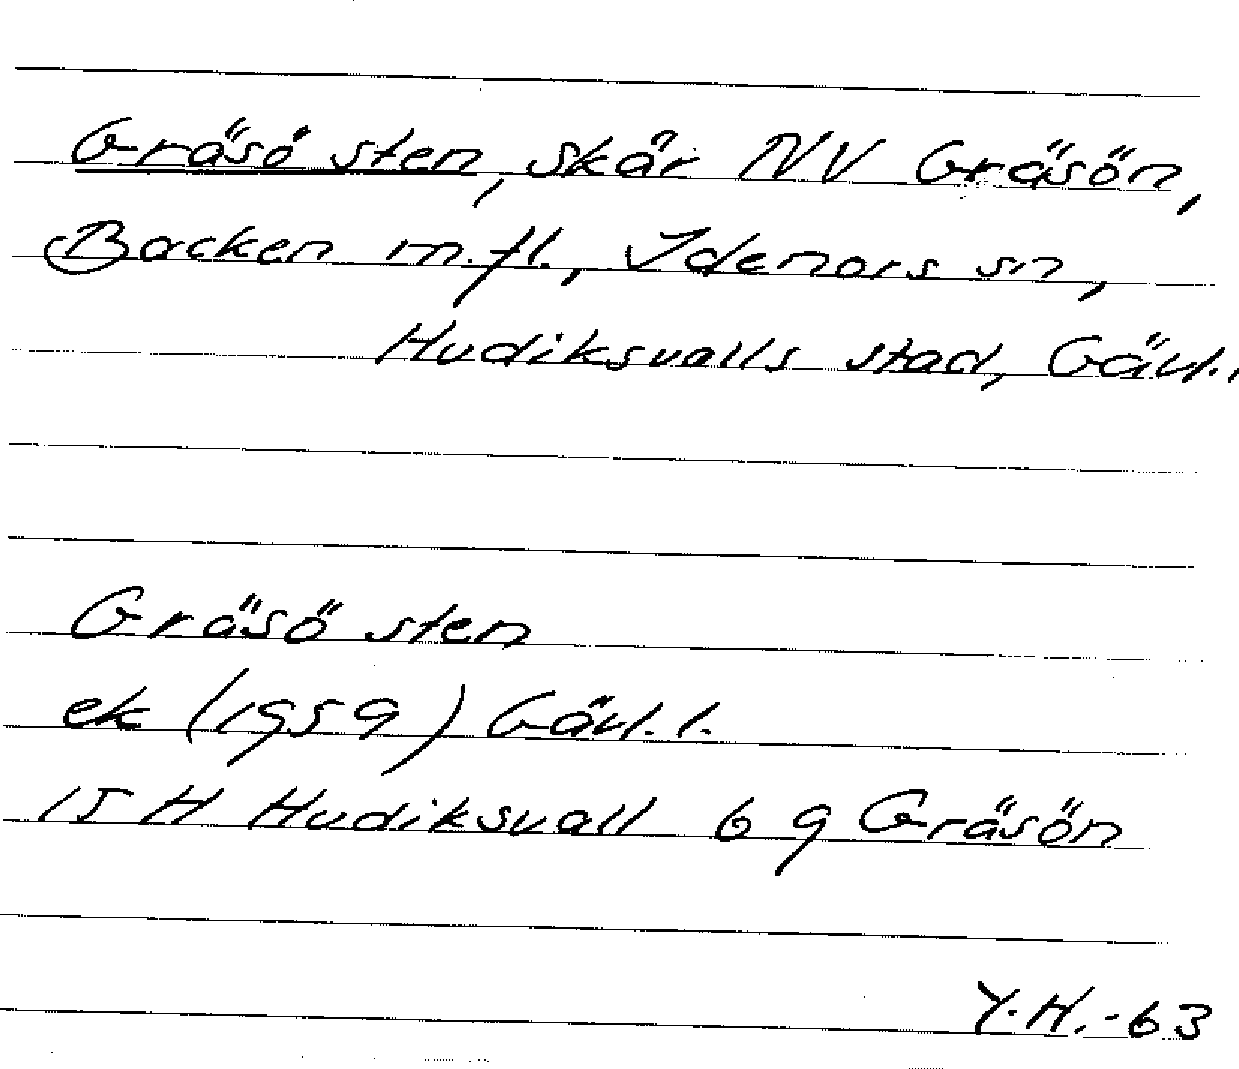 Gräsö sten, skär NV Gräsön,
Backen m.fl., Idenors sn,
Hudiksvalls stad, Gävl.l.
Gräsö sten
ek (1959) Gävl.l.
15 H Hudiksvall 6 g Gräsön
Y.H.-63